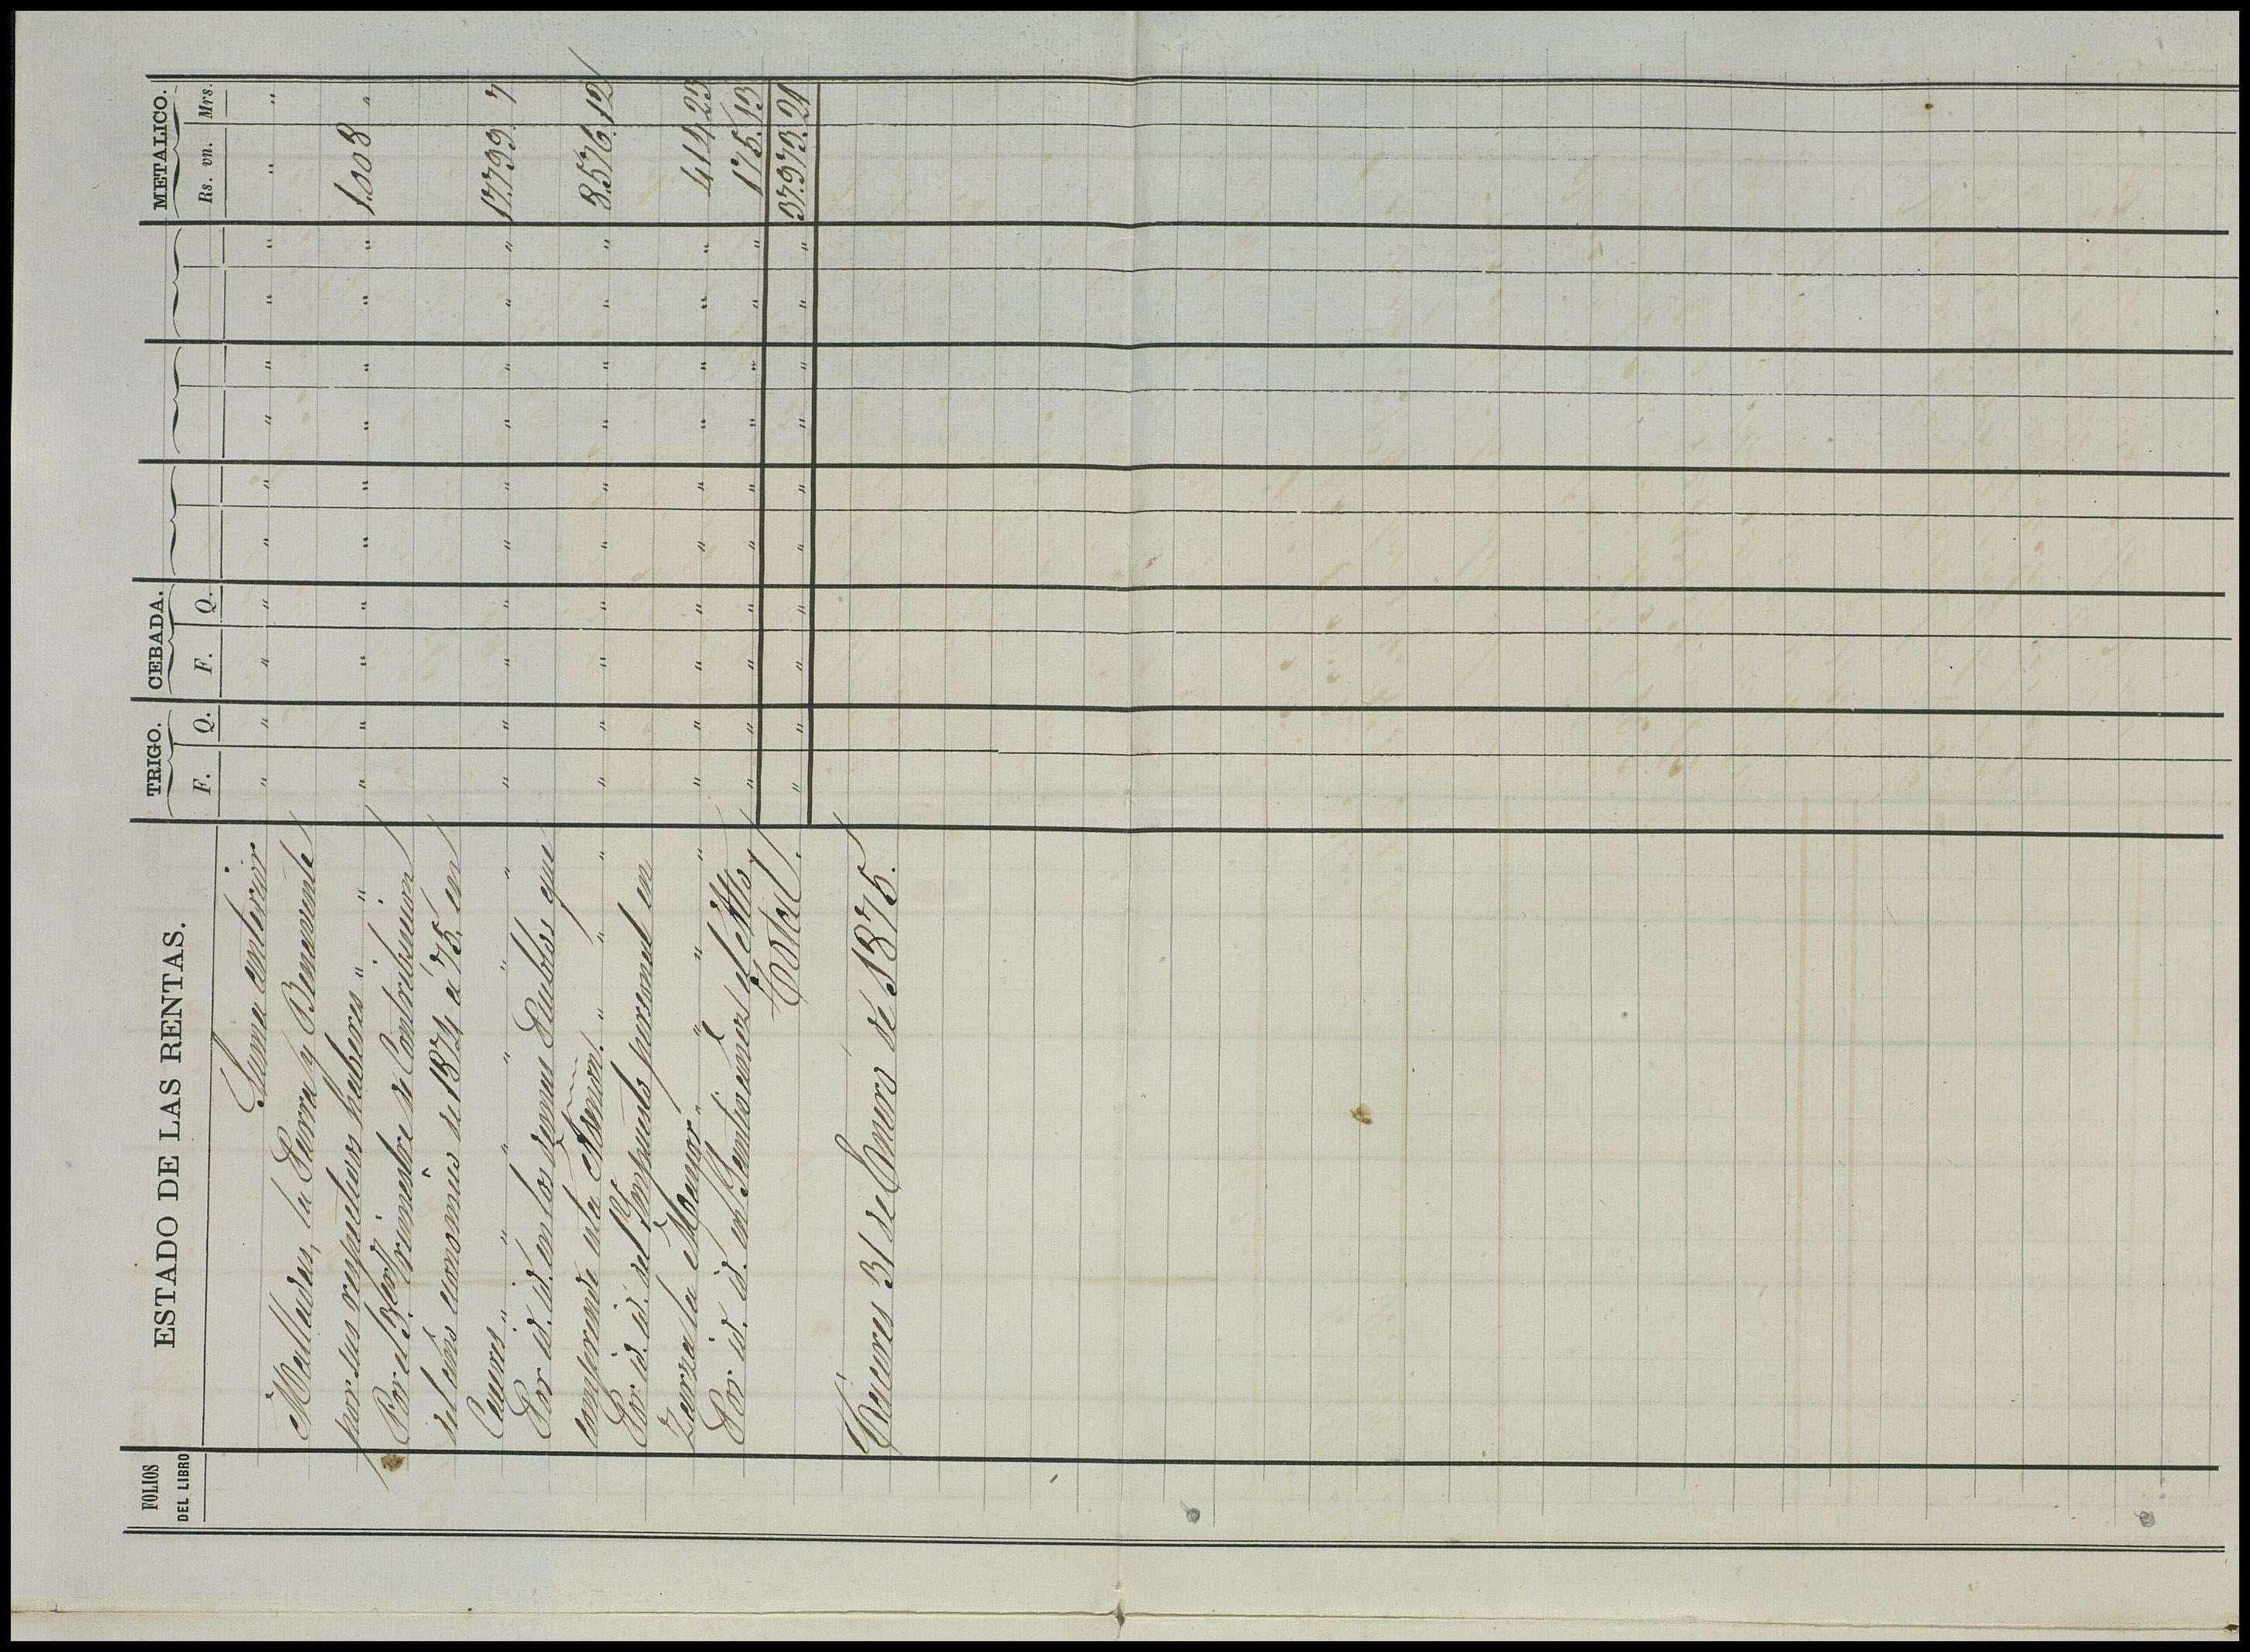 FOLIOS DEL LIBRO
ESTADO DE LAS RENTAS.
TRIGO. CEBADA. METALICO.
F. Q. F. Q. Rs. vn. Mrs.
Suma anterior " " " " " " " " " " " "
Malladas, la Parra y Benavente
por sus respectivos haberes " " " " " " " " " " " " 1.008 "
Por el 3er Trimestre de Contribucion
del año economico de 1874 á 75, en
Caceres " " " " " " " " " " " " " " " " 17.799. 7
Por id. id. en los demas Pueblos que
comprende esta Admon. " " " " " " " " " " " " " 3.576. 12
Por id. id. del Impuesto personal en
Zarza la Mayor " " " " " " " " " " " " " " 414. 23
Por id. id. en Santiago el Mto " " " " " " " " " " 175. 13
Total. " " " " " " " " " " 37.973. 21
Cáceres 31 de Enero de 1875.